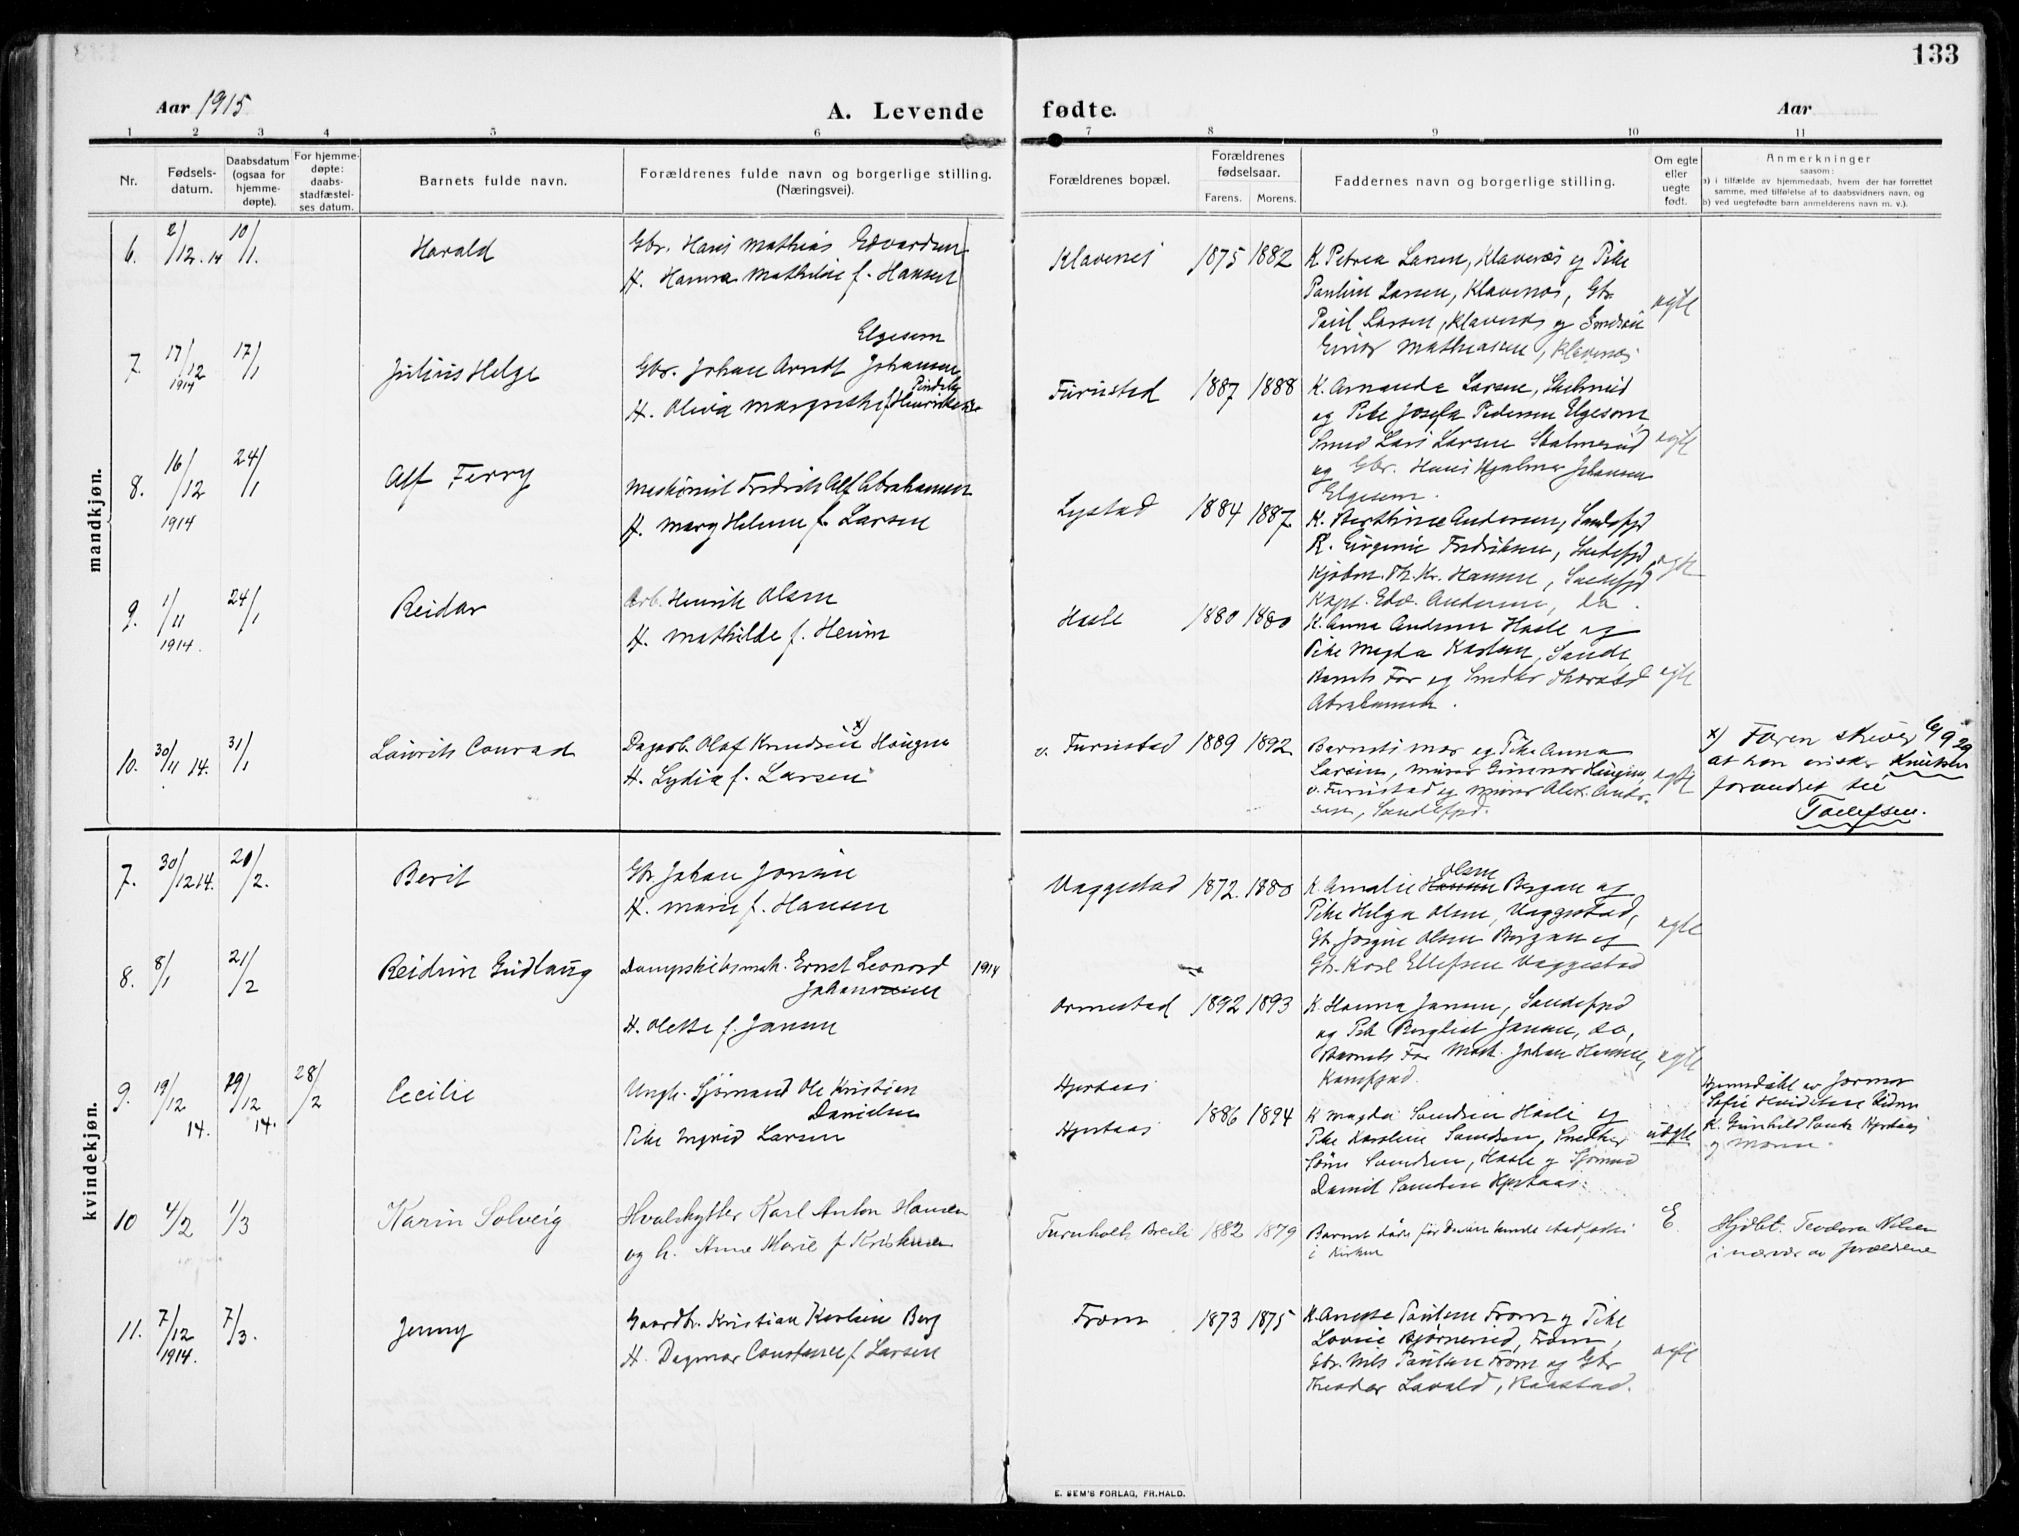 133
Aar 1915
A. Levende fødte.
Aar
1 2 3 4 5 6 7 8 9 10 11
Nr.
Fødsels-
datum.
Daabsdatum
(ogsaa for
hjemme-
døpte).
For hjemme-
døpte:
daabs-
stadfæstel-
ses datum.
Barnets fulde navn.
Forældrenes fulde navn og borgerlige stilling.
(Næringsvei).
Forældrenes bopæl.
Forældrenes
fødselsaar.
Farens. Morens.
Faddernes navn og borgerlige stilling.
Om egte
eller
uegte
født.
Anmerkninger
saasom:
a) i tilfælde av hjemmedaab, hvem der har forrettet
samme, med tilføielse af to daabsvidners navn, og
b) ved uegtefødte barn anmelderens navn m. v.).
mandkjøn.
6. 2/12.14 10/1. Harald
Gbr. Hans Mathias Edvardsen
H. Hanna Mathilde f. Hansen
Klavenes 1875 1882
K. Petrea Larsen, Klavenæs og Pike
Pauline Larsen, Klavenæs, Gbr.
Paul Larsen, Klavenæs og
Einar Mathiasen, Klavenæs
egte
7. 17/12 1914 17/1 Julius Helge
Elgesem
Gbr. Johan Arndt Johansen
H. Oliva Margrethe f. Henriksen
Furustad 1887 1888
K. Amanda Larsen,
og Pike Josefa Pedersen Elgesem,
Smed Lars Larsen
og Gbr. Hans Hjalmar Johansen
Elgesem.
egte
8. 16/12 1914 24/1 Alf Ferry
Maskinist Fredrik Alf Abrahamsen
H. Mary Helene f. Larsen
Lystad 1884 1887
K. Berthine Andersen, Sandefjd
K. Eugenie Fredriksen, Sandefjd,
Kjøbm. Th. Kr. Hansen, Sandefjd
Kapt. Edv. Andersen, do.
egte
9. 1/11 1914. 24/1 Reidar
Arb. Henrik Olsen
H. Mathilde f. Heum
Hasle 1880 1880
K. Anna Andersen Hasle og
Pike Magda Karlsen, Sande,
Barnets Far og Snedker Thorvald
Abrahamsen.
egte
10. 30/11 14. 31/1 Laurits Conrad
Dagarb. Olaf Knudsen x) Haugen
H. Lydia f. Larsen
v. Furustad 1889 1892
Barnets mor og Pike Anna
Larsen, murer Gunnar Haugen,
v. Furustad og murer Alex. Ander-
sen, Sandefjd.
egte
x) Faren skriver 6/9 29
at han ønsker Knutsen
forandret til
Tollefsen.
kvindekjøn.
7. 30/12 14. 20/2. Berit
Gbr. Johan
H. Marie f. Hansen
Vaggestad 1872. 1880
Olsen
K. Amalie Hansen Bergan og
Pike Helga Olsen, Vaggestad,
Gb. Jørgen Olsen Bergan og
Gbr. Karl Ellefsen Vaggestad
egte
8. 8/1 21/2 Reidun Gudlaug
Dampskibsmask. Ernst Leonard 1914
Johannesen
H. Olette f. Jansen
Ormestad 1892 1893
K. Hanna Jansen, Sandefjod
og Pike Borghild Jansen, do,
Barnets Far Mask. Johan Hansen,
egte
9. 19/12 14. 29/12 14. 28/2 Cecilie
Ungk. Sjømand Ole Kristian
Danielsen
Pike Ingrid Larsen
Hjertaas
Hjertaas
1886 1894
K Magda Svendsen Hasle og
Pike Karoline Svendsen, Snedker
Svendsen, Hasle og Sjømand
Daniel Svendsen Hjertaas.
uegte
Hjemmedøbt av Jormor
Sofie
K. Gunhild Hjertaas
og Moren.
10 4/2 1/3 Karin Solveig
Hvalskytter Karl Anton Hansen
og h. Anne Marie f Kristensen
Breili 1882 1879
Barnet døde før Daaben kunde stadfæstes
i Kirken
E.
Hjdbt. Teodora Nilsen
i nærvær av forældrene
11. 7/12 1914. 7/3. Jenny
Gaardbr. Kristian Karlsen Berg
H. Dagmar Constance f. Larsen
Fræm 1873 1875
K. Anette Paulsen Fræm og Pike
Lovise Bjørnerud, Fræm,
Gbr. Nils Paulsen Fræm og Gbr
Theodor Lavold, Raastad.
egte
E. SEM'S FORLAG, FR.HALD.